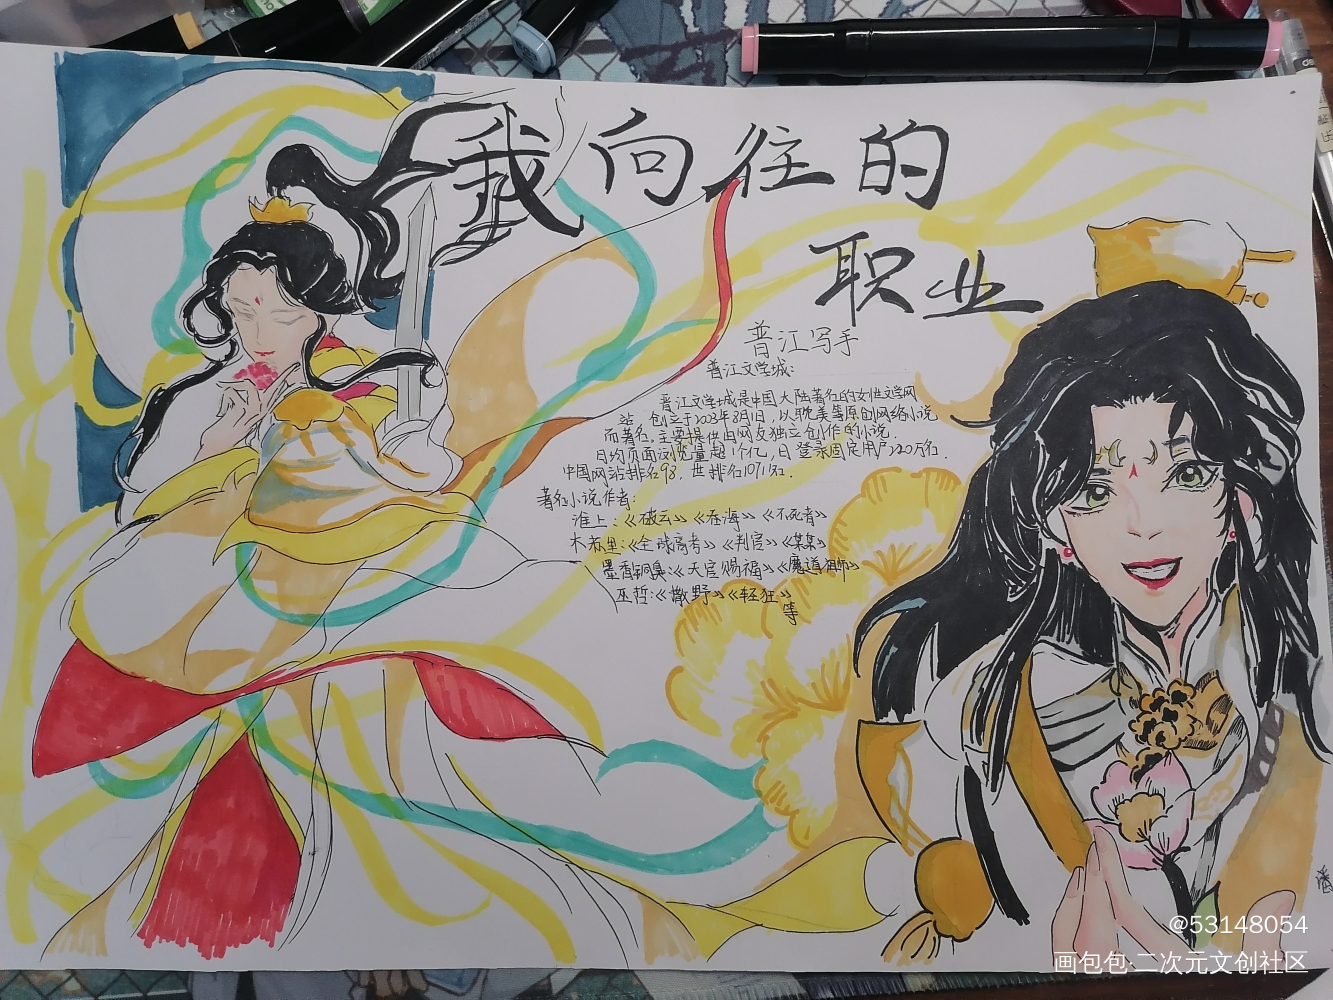 我向往的
职业
晋江写手
晋江文学城:
晋江文学城是中国大陆著名的女性文学网
站,创立于2003年8月1日,以耽美等原创网络小说
而著名,主要提供由网友独立创作的小说.
日均页面浏览量超1个亿,日登录固定用户220万名.
中国网站排名98,世排名1071名.
著名小说作者:
淮上:《破云》《吞海》《不死者》
木苏里:《全球高考》《判官》《某某》
墨香铜臭:《天官赐福》《魔道祖师》
巫哲:《撒野》《轻狂》
等
潘
@53148054
画包包·二次元文创社区